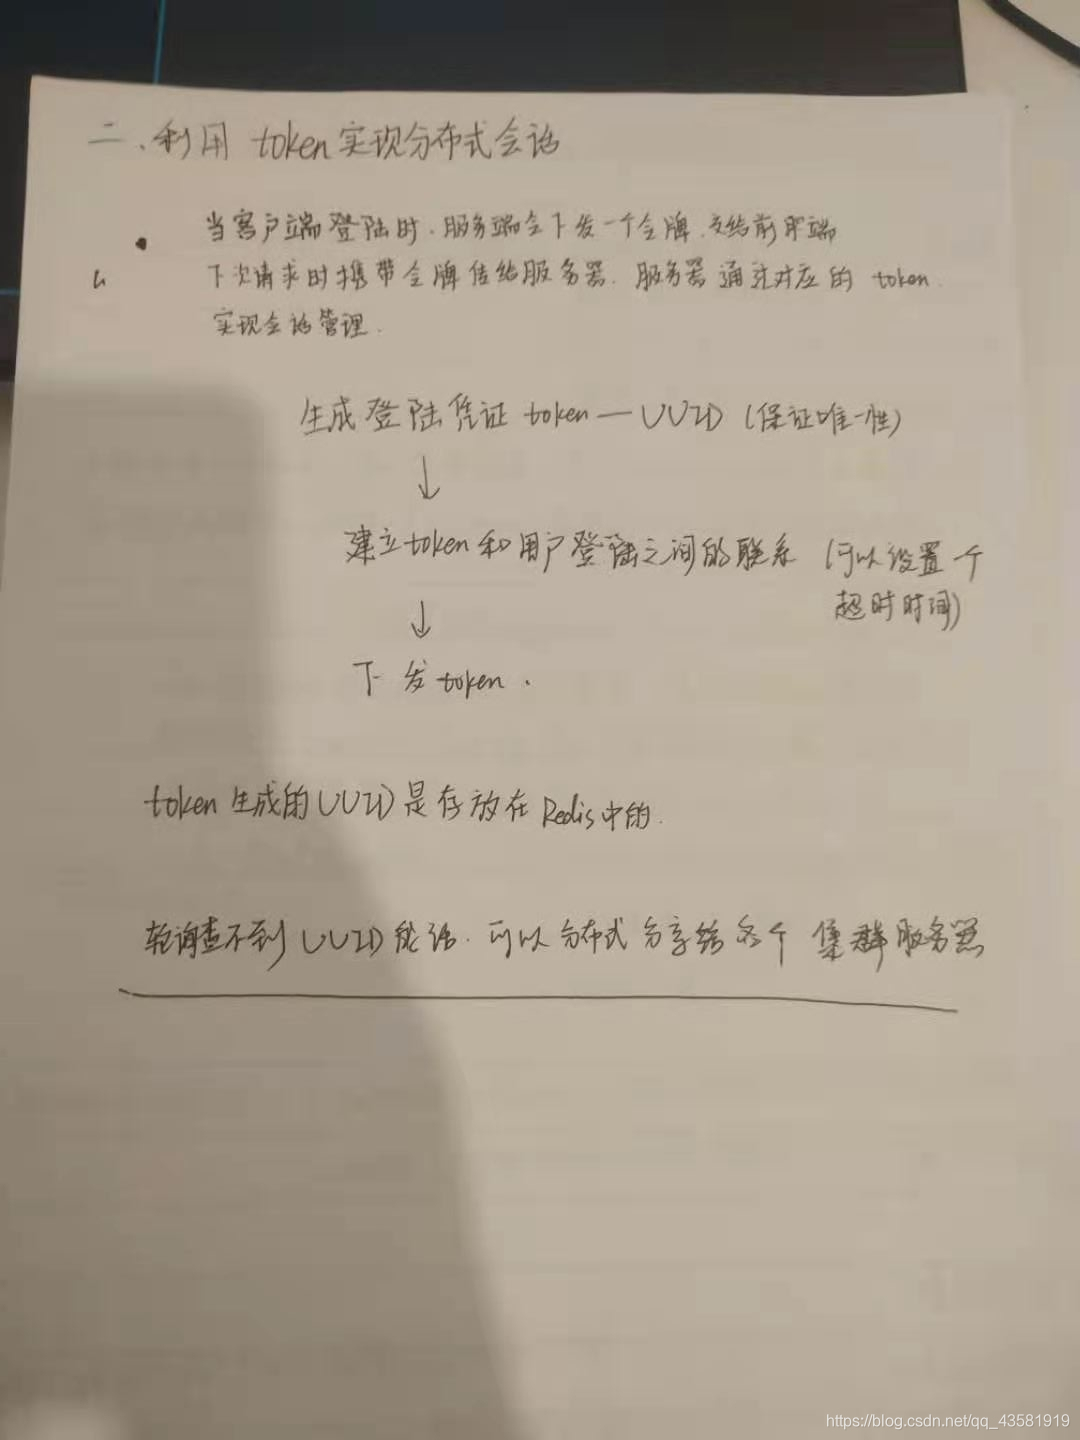 二、利用 token实现分布式会话
当客户端登陆时.服务端会下发一个令牌.交给前端
下次请求时携带令牌传给服务器.服务器通过对应的 token.
实现会话管理.
生成登陆凭证 token—UUID (保证唯一性)
↓
建立token和用户登陆之间的联系 (可以设置一个
超时时间)
↓
下发token.
token生成的UUID是存放在Redis中的.
轮询查不到UUID的话.可以分布式分享给各个集群服务器
https://blog.csdn.net/qq_43581919